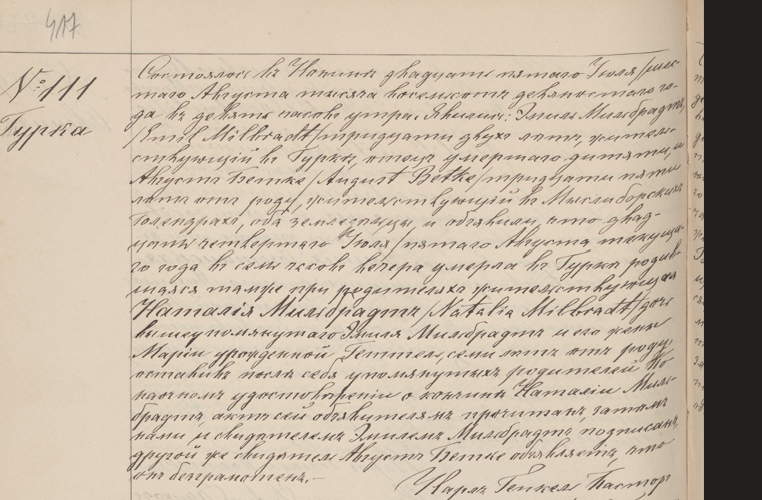 417
№ 111
Турка
Состоялось въ Конинѣ двадцать пятаго Іюля /шес-
таго Августа тысяча восемьсотъ девяностаго го-
да въ девять часовъ утра. Явились: Эмиль Мильбрадтъ,
/Emil Milbradt/ тридцати двухъ лѣтъ, житель-
ствующій въ Туркѣ, отецъ умершаго дитяти, и
Августъ Бетке /August Betke/ тридцати пяти
лѣтъ отъ роду, жительствующій въ Мыслиборскихъ
Голендрахъ, оба землевладѣльцы, и объявили, что двад-
цать четвертаго Іюля /пятаго Августа текуща-
го года въ семь часовъ вечера умерла въ Туркѣ родив-
шаяся тамже при родителяхъ жительствующая
Наталія Мильбрадтъ /Natalia Milbradt/ дочь
вышеупомянутаго Эмиля Мильбрадтъ и его жены
Маріи урожденной семи лѣтъ отъ роду,
оставивъ послѣ себя упомянутыхъ родителей. По
настномъ удостовѣреніи о кончинѣ Наталіи Миль-
брадтъ, актъ сей объявителямъ прочитанъ, затѣмъ
нами и свидѣтелемъ Эмилемъ Мильбрадтъ подписанъ,
другой же свидѣтель Августъ Бетке объявляетъ, что
онъ безграмотенъ.—
Карлъ Генкель Пасторъ